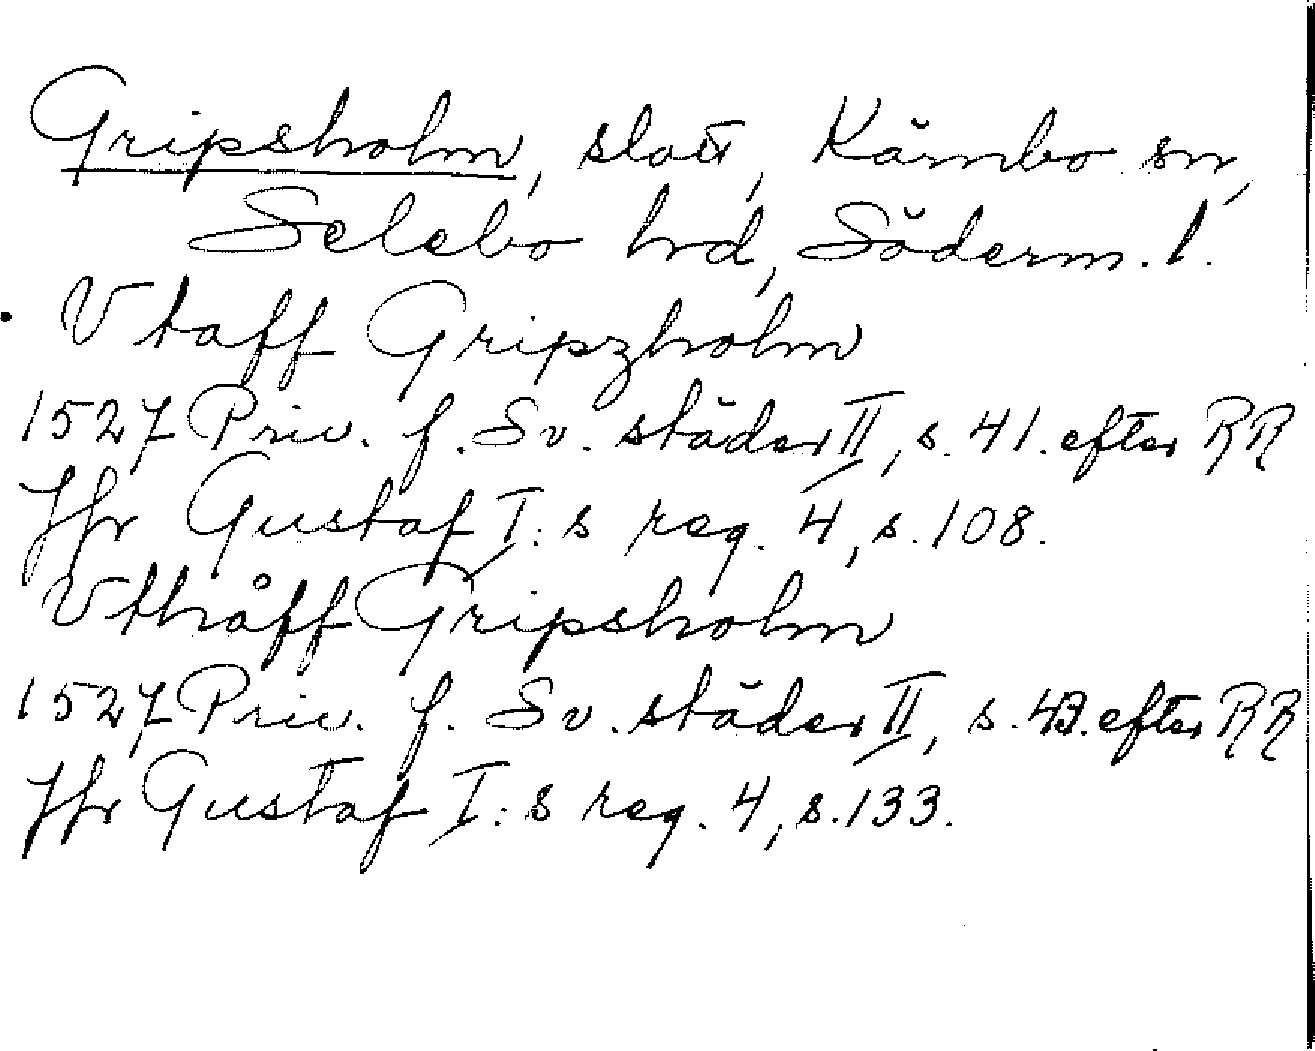 Gripsholm, slott, Kärnbo sn,
Selebo hrd, Söderm. l.
Vtaff Gripzholm
1527 Priv. f. Sv. städer II, s. 41. efter RR
Jfr Gustaf I:s reg. 4, s. 108.
Vthåff Gripsholm
1527 Priv. f. Sv. städer II, s. 43. efter RR
Jfr Gustaf I:s reg. 4, s. 133.